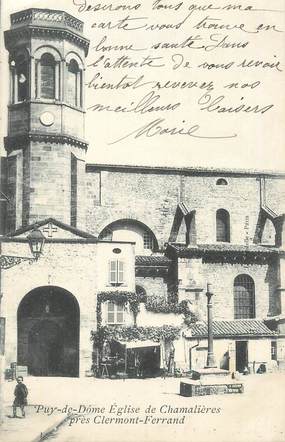 désirons tous que ma
carte vous trouve en
bonne santé. Dans
l'attente de vous revoir
bientôt recevez nos
meilleurs baisers
Marie
Puy-de-Dôme Église de Chamalières
près Clermont-Ferrand